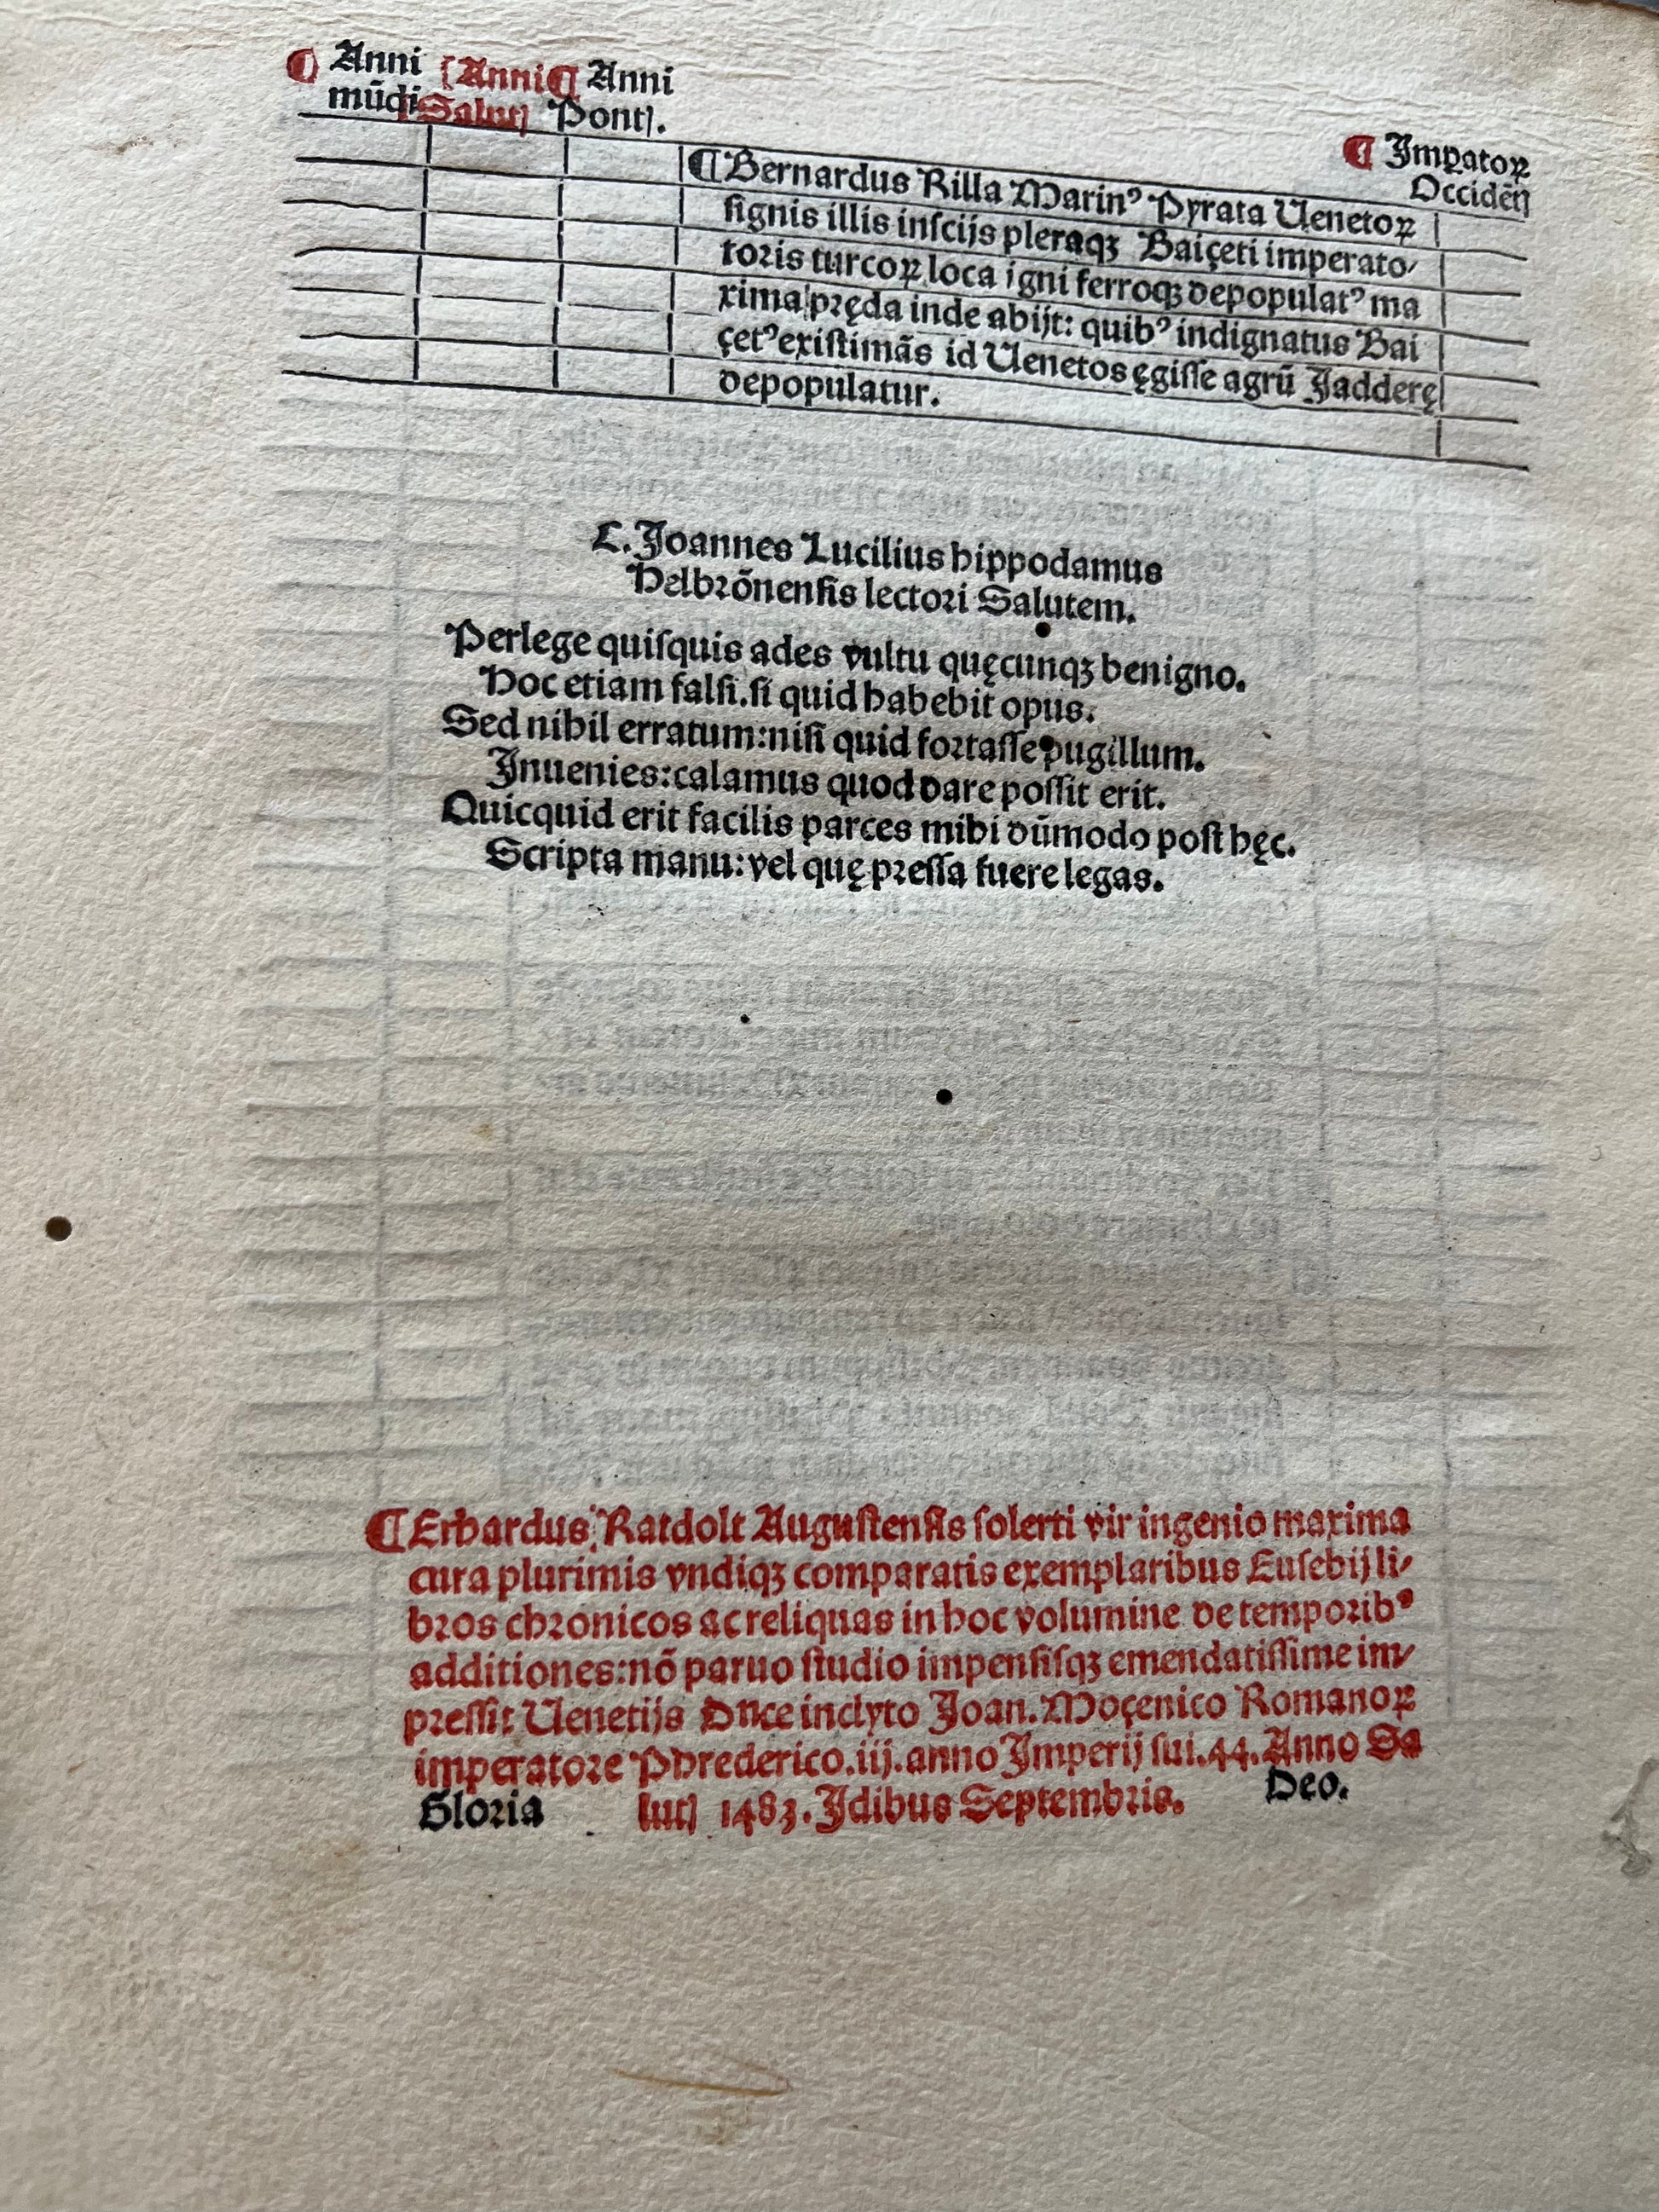 ¶ Anni ⁅Anni ¶ Anni
mūdi Salutꝭ Pontꝭ.
¶ Impatoꝝ
Occidēꝭ
¶Bernardus Rilla Marinꝰ Pyrata Uenetoꝝ
ſignis illis inſcijs pleraqꝫ Baiçeti imperato⸗
toris turcoꝝ loca igni ferroqꝫ depopulatꝰ ma
xima pręda inde abijt: quibꝰ indignatus Bai
çetꝰ exiſtimãs id Uenetos ęgiſſe agrū Jadderę
depopulatur.
L. Joannes Lucilius hippodamus
Helbrõnenſis lectori Salutem.
Perlege quiſquis ades vultu quęcunqꝫ benigno.
Hoc etiam falſi. ſi quid habebit opus.
Sed nihil erratum: niſi quid fortaſſe pugillum.
Inuenies: calamus quod dare poſſit erit.
Quicquid erit facilis parces mihi dūmodo poſt hęc.
Scripta manu: vel quę preſſa fuere legas.
¶Erhardus Ratdolt Auguſtenſis ſolerti vir ingenio maxima
cura plurimis vndiqꝫ comparatis exemplaribus Euſebij li⸗
bros chronicos ac reliquas in hoc volumine de temporibꝰ
additiones: nõ paruo ſtudio impenſiſqꝫ emendatiſſime im⸗
preſſit Uenetijs Duce inclyto Joan. Moçenico Romanoꝝ
imperatore Phrederico .iij. anno Imperij ſui .44. Anno Sa
Gloria lutꝭ 1483. Idibus Septembris. Deo.